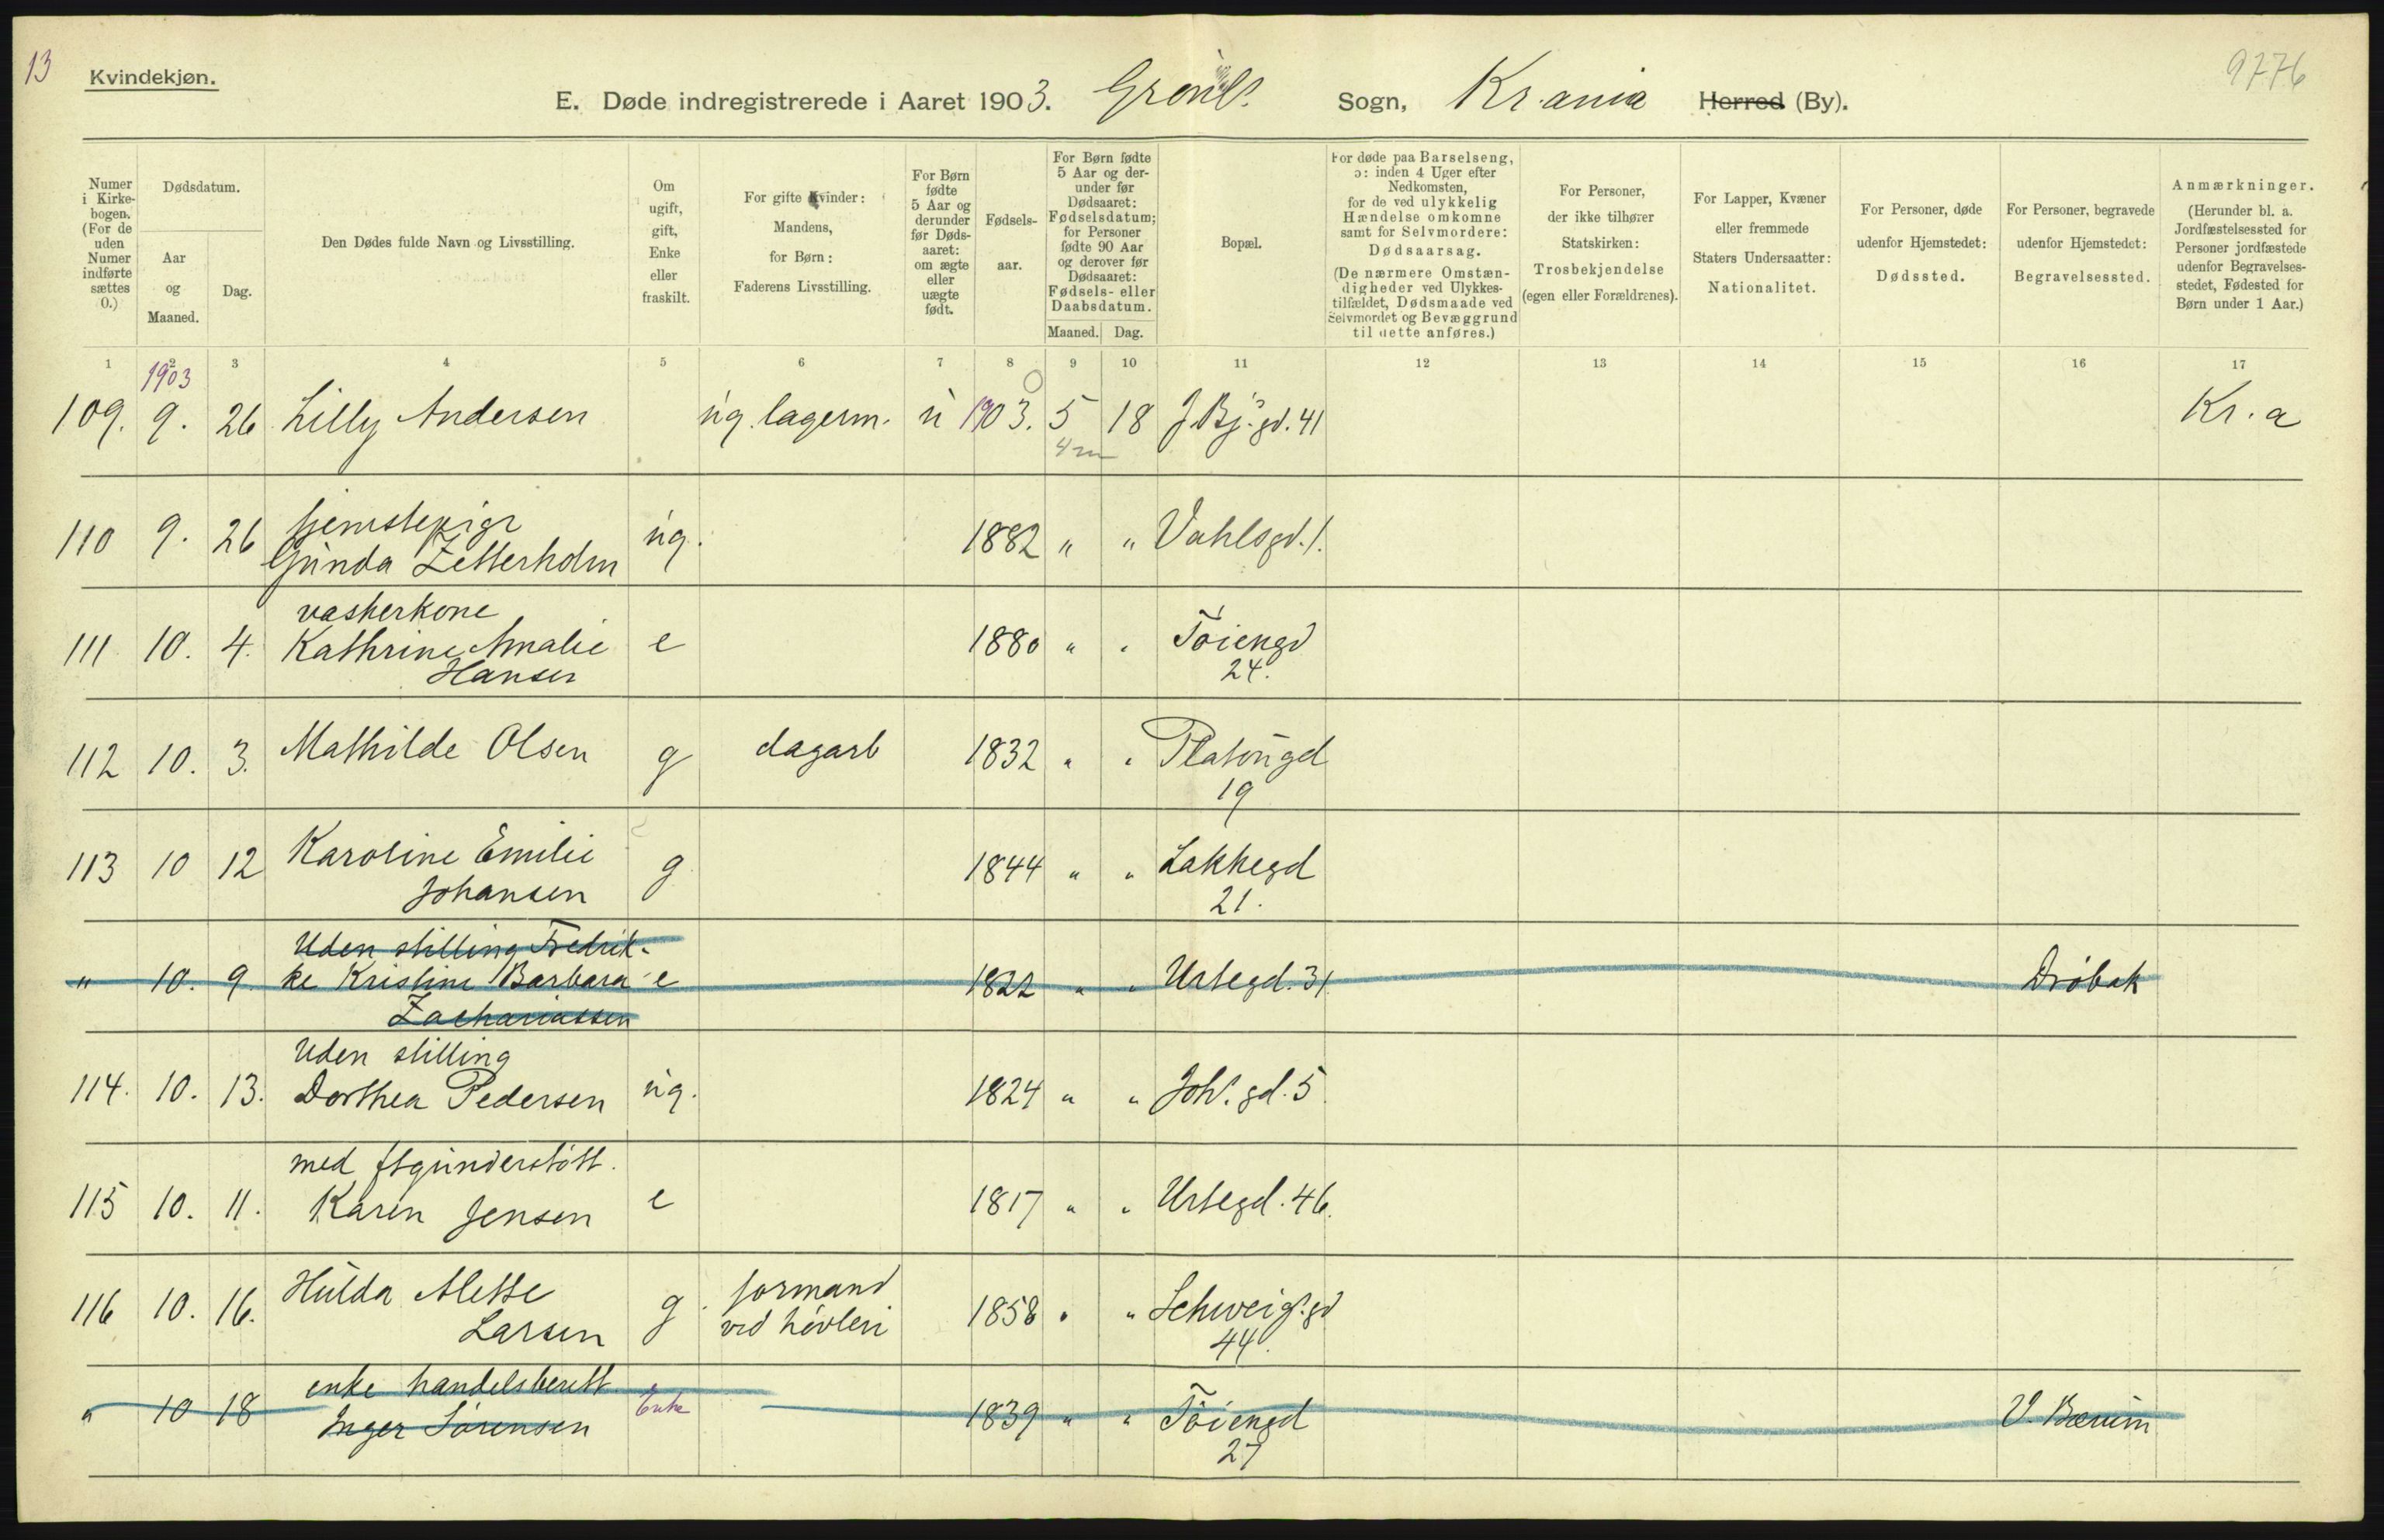 13
Kvindekjøn.
9776
E. Døde indregistrerede i Aaret 1903. Grønl. Sogn, Kr.ania Herred (By).
Numer i Kirkebogen. (For de uden Numer indførte sættes 0.)
Dødsdatum.
Aar og Maaned.
Dag.
Den Dødes fulde Navn og Livsstilling.
Om ugift, gift, Enke eller fraskilt.
For gifte Kvinder: Mandens, for Børn: Faderens Livsstilling.
For Børn fødte 5 Aar og derunder før Dødsaaret: om ægte eller uægte født.
Fødselsaar.
For Børn fødte 5 Aar og derunder før Dødsaaret: Fødselsdatum; for Personer fødte 90 Aar og derover før Dødsaaret: Fødsels- eller Daabsdatum.
Maaned. Dag.
Bopæl.
For døde paa Barselseng, ɔ: inden 4 Uger efter Nedkomsten, for de ved ulykkelig Hændelse omkomne samt for Selvmordere: Dødsaarsag. (De nærmere Omstændigheder ved Ulykkestilfældet, Dødsmaade ved Selvmordet og Bevæggrund til dette anføres.)
For Personer, der ikke tilhører Statskirken: Trosbekjendelse (egen eller Forældrenes).
For Lapper, Kvæner eller fremmede Staters Undersaatter: Nationalitet.
For Personer, døde udenfor Hjemstedet: Dødssted.
For Personer, begravede udenfor Hjemstedet: Begravelsessted.
Anmærkninger. (Herunder bl. a. Jordfæstelsessted for Personer jordfæstede udenfor Begravelsesstedet, Fødested for Børn under 1 Aar.)
1 2 3 4 5 6 7 8 9 10 11 12 13 14 15 16 17
1903
109. 9. 26 Lilly Andersen ug. lagerm. u 1903. 5 18 J. Bj. gd. 41 Kr.a
4 m
110 9. 26 tjenstepige
Gunda Zetterholm ug. 1882 " " Vahlsgd. 1.
111 10. 4. vaskerkone
Kathrine Amalie e 1880 " " Tøiengd
Hansen 24.
112 10. 3. Mathilde Olsen g dagarb 1832 " " Platougd
19
113 10 12 Karoline Emilie g 1844 " " Lakkegd
Johansen 21.
Uden stilling Fredrik-
" 10. 9 ke Kristine Barbara e 1822 " " Urtegd. 31 Drøbak
Zachariassen
Uden stilling
114. 10. 13. Dorthea Pedersen ug. 1824 " " Joh.s gd. 5
med ftgunderstøtt.
115 10. 11. Karen Jensen e 1817 " " Urtegd. 46.
116 10. 16. Hulda Alette g. formand 1858 " " Schweig. gd
Larsen ved høvleri 44.
enke handelsberett
" 10 18 Inger Sørensen Enke 1839 " " Tøiengd V. Bærum
27